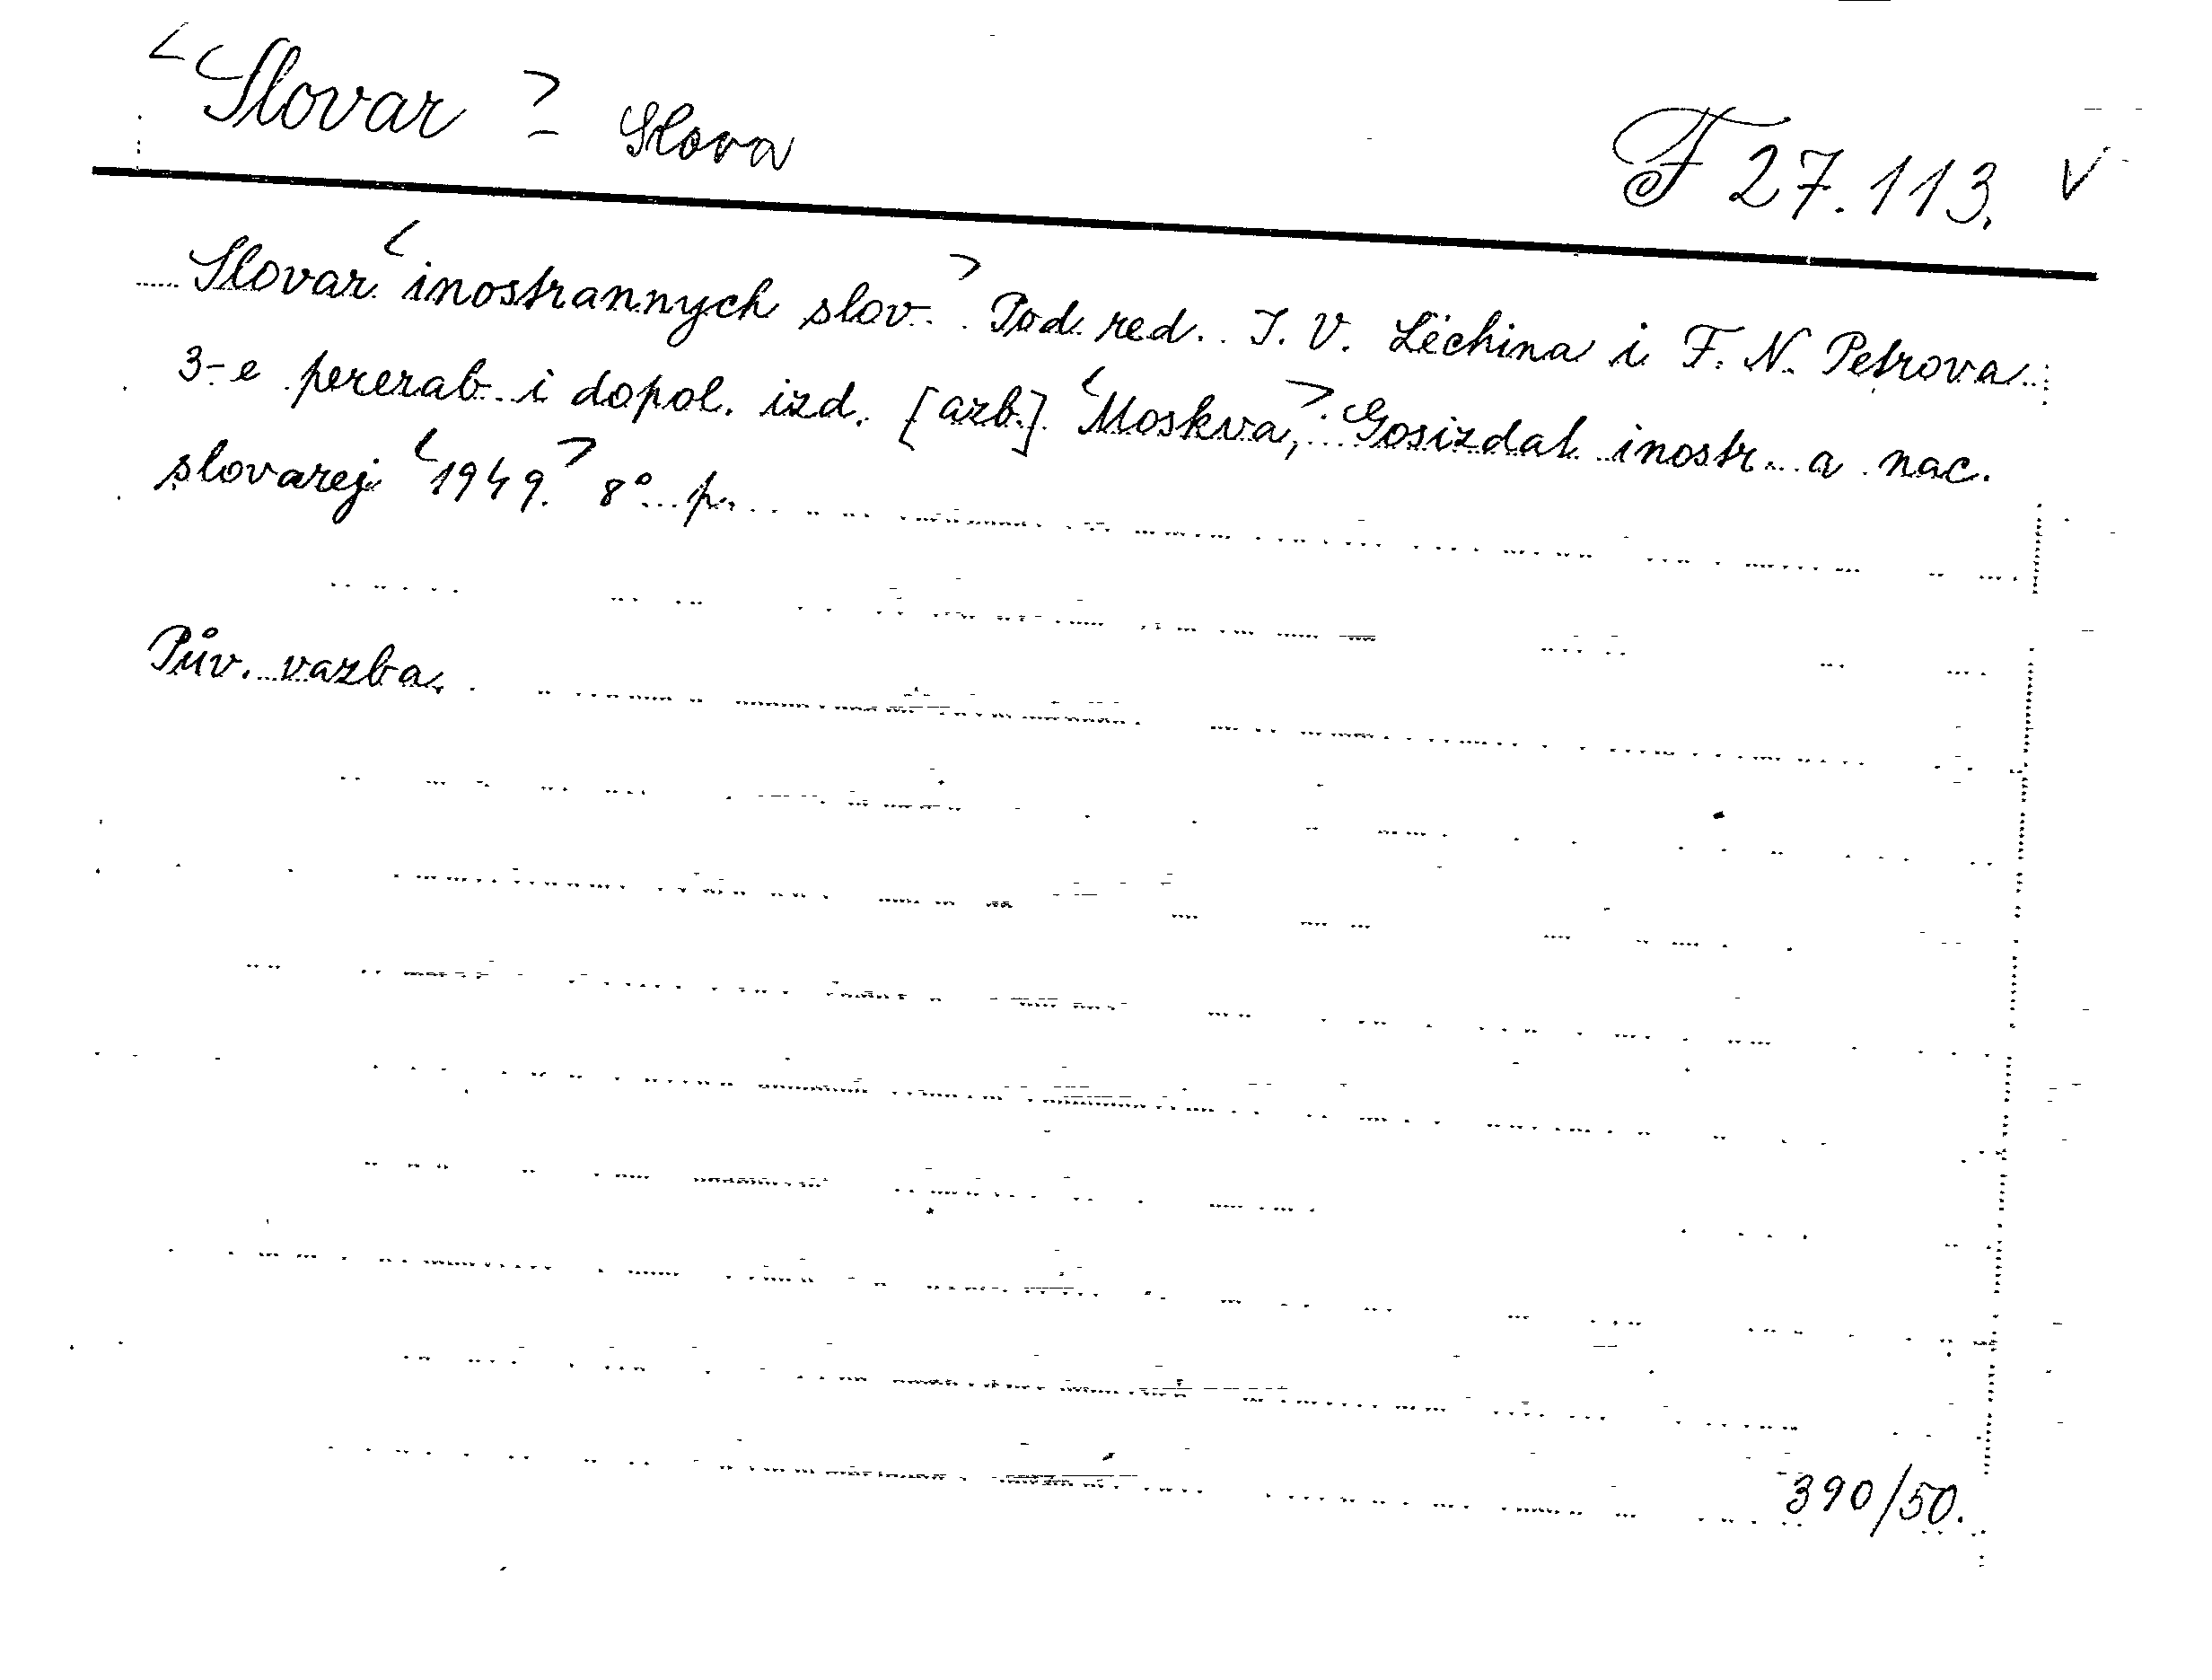 <Slovar> - Slova
F 27.113. V
Slovar <inostrannych slov.> Pod red. I. V. Lëchina i F. N. Petrova.
3-e pererab. i dopol. izd. [azb.] <Moskva,> Gosizdat inostr. a nac.
slovarej <1949.> 8° p.
Pův. vazba.
390/50.